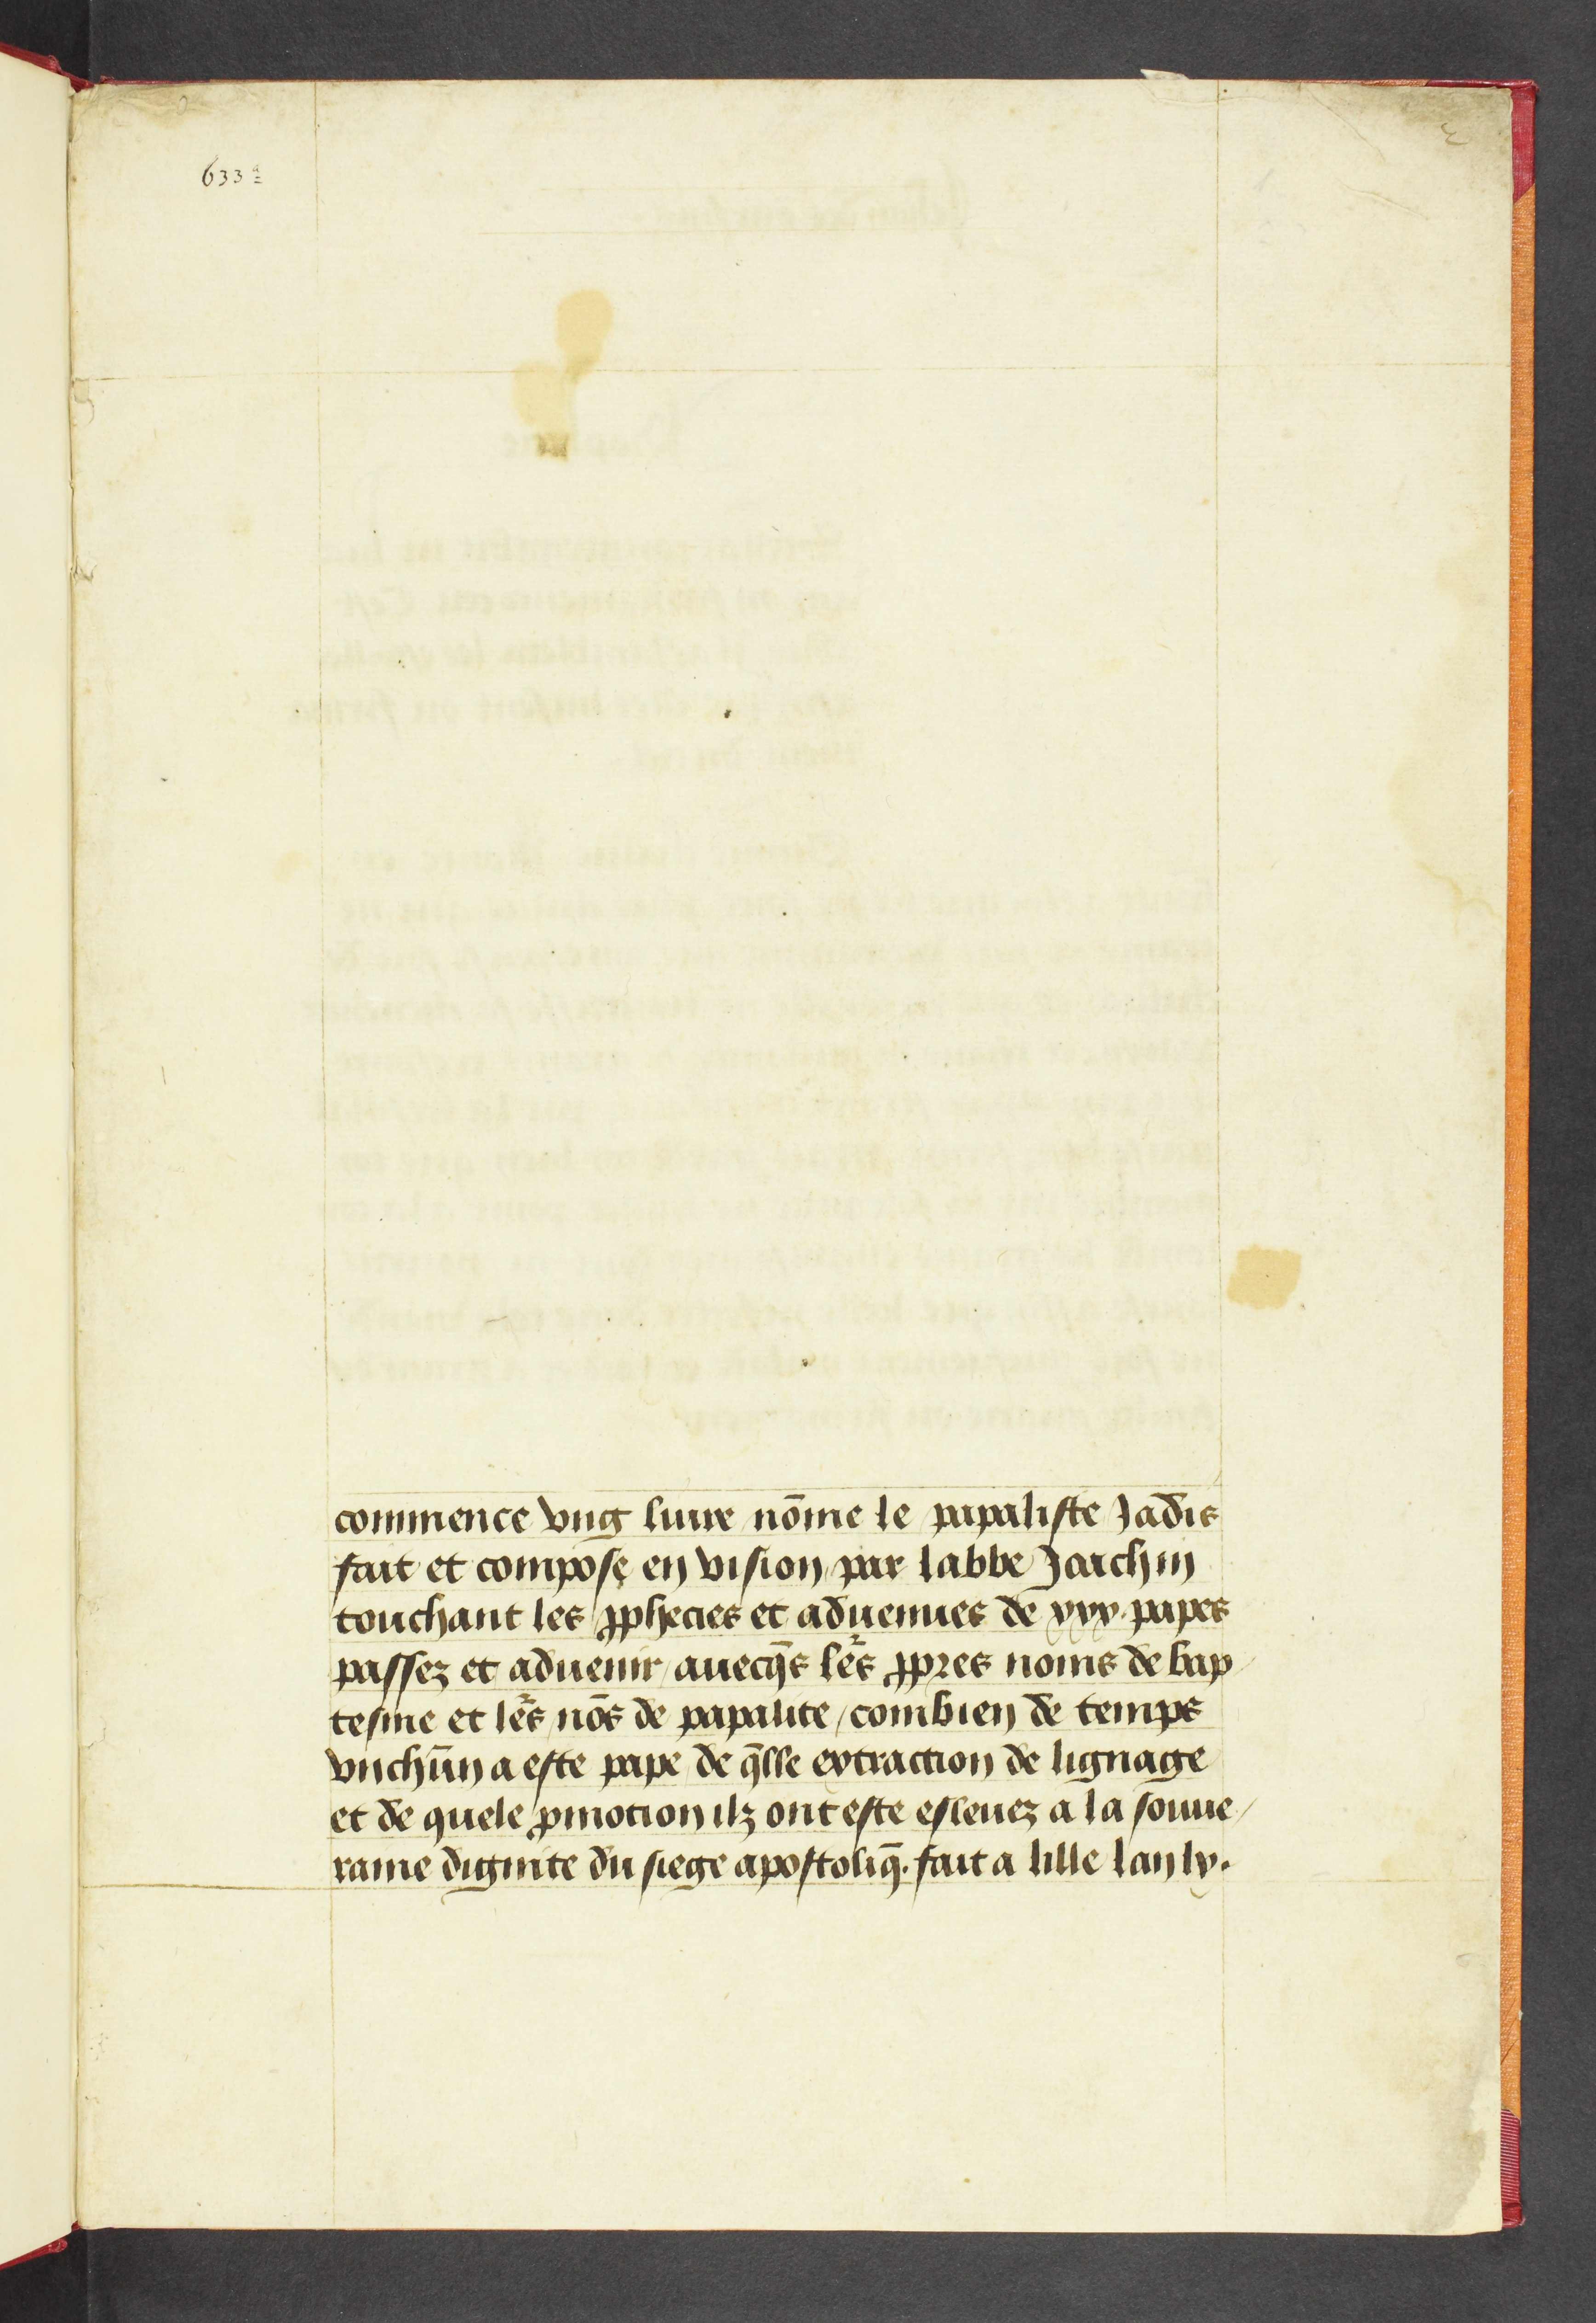 633ª
commence vng liure nōme le papaliste Jadis
fait et compose en vision par labbe Joachin
touchant les ꝓphecies et aduenues de xxx. papes
passez et aduenir / auecq̄s le͛s ꝓpres noms de bap/
tesme et le͛s nōs de papalite / combien de temps
vnchūn a este pape / de q̄lle extraction de lignage
et de quele ꝓmotion ilz ont este esleuez a la souue/
raine dignite du siege apostoliq̄. fait a lille lan lv.